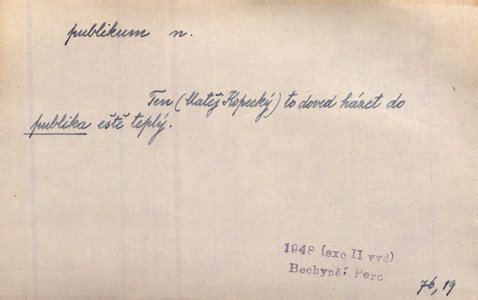 publikum n.
Ten (Matěj Kopecký) to doved házet do
publika eště teplý.
1948 (exc II vyd)
Bechyně: Pero
76, 19